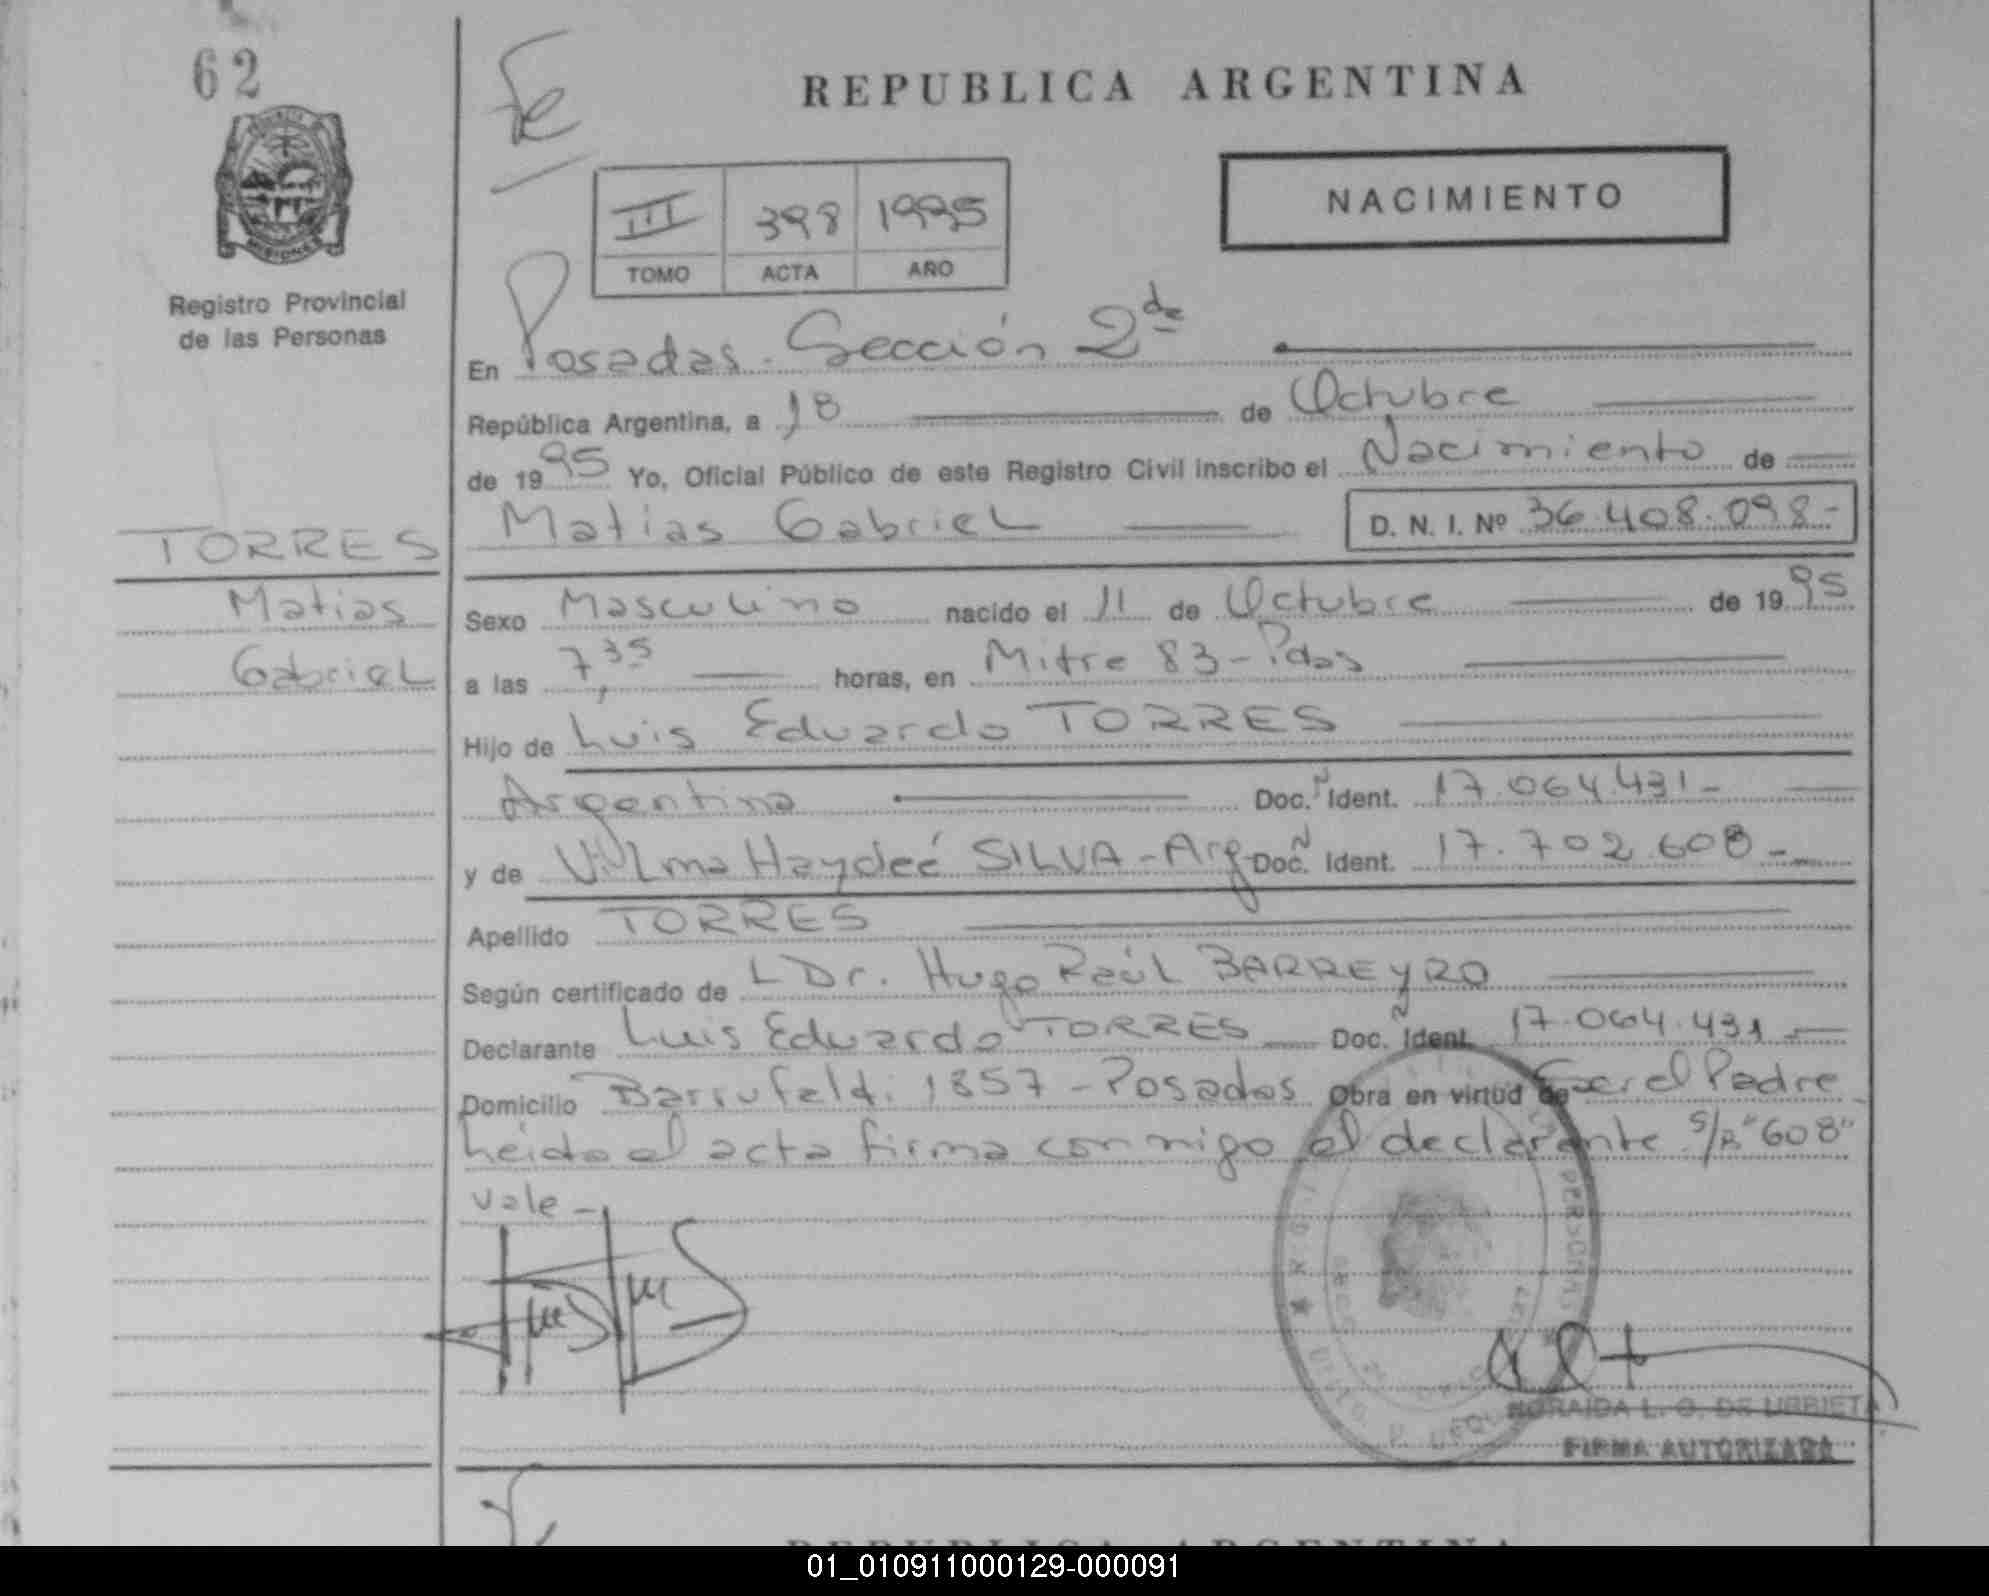 62
Fe
REPUBLICA ARGENTINA
NACIMIENTO
III 398 1995
TOMO ACTA AÑO
Registro Provincial
de las Personas
En Posadas - Sección 2da
República Argentina, a 18 de Octubre
de 1995 Yo, Oficial Público de este Registro Civil inscribo el Nacimiento de
Matias Gabriel D. N. I. Nº 36.408.098-
TORRES
Matias
Gabriel
Sexo Masculino nacido el 11 de Octubre de 1995
a las 7,35 horas, en Mitre 83 - Pdas
Hijo de Luis Eduardo TORRES
Argentina Doc. N Ident. 17.064.431-
y de Vilma Haydeé SILVA - Arg Doc. N Ident. 17.702.608-
Apellido TORRES
Según certificado de L Dr. Hugo Raúl BARREYRO
Declarante Luis Eduardo TORRES Doc. N Ident. 17.064.431-
Domicilio Barrufaldi 1857 - Posadas Obra en virtud de Ser el Padre
Leida el acta firma conmigo el declarante S/R "608"
Vale -
PERSONAS
L. G. DE URRIETA
FIRMA AUTORIZADA
REPUBLICA ARGENTINA
01_010911000129-000091